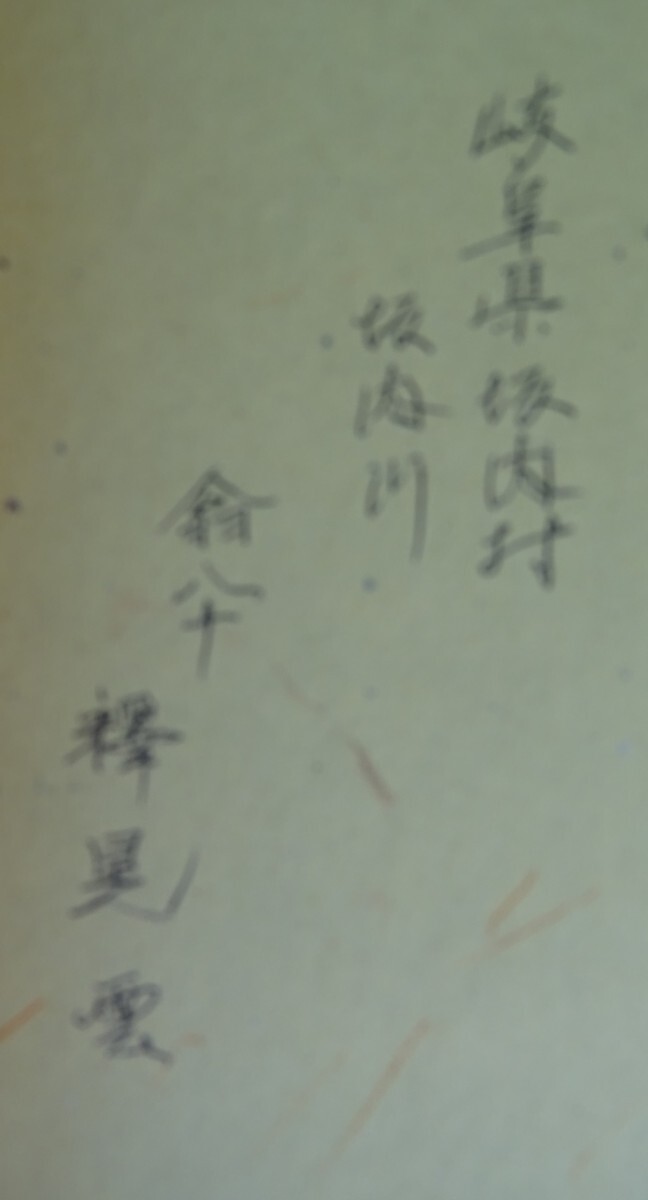 岐阜県坂内村
坂内川
翁八十
釋晃雲